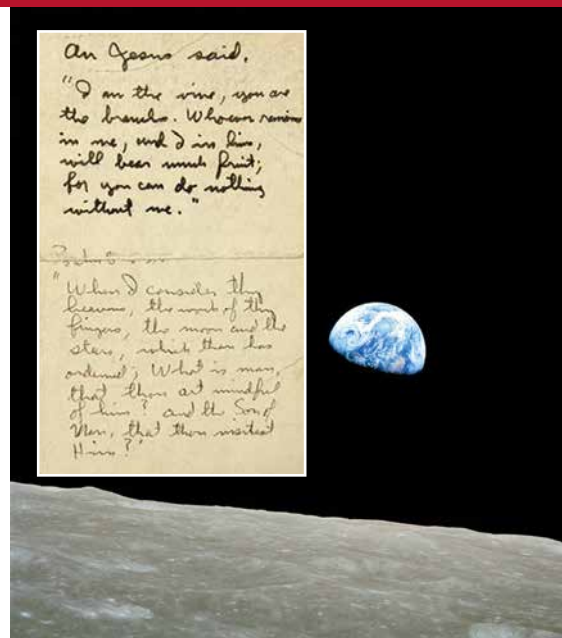 An Jesus said,
"I am the vine, you are
the branches. Whoever remains
in me, and I in him,
will bear much fruit;
for you can do nothing
without me."
Psalm
"When I consider thy
heavens, the work of thy
fingers, the moon and the
stars, which thou has
ordained; What is man,
that thou art mindful
of him? and the Son of
Man, that thou visitest
Him?"